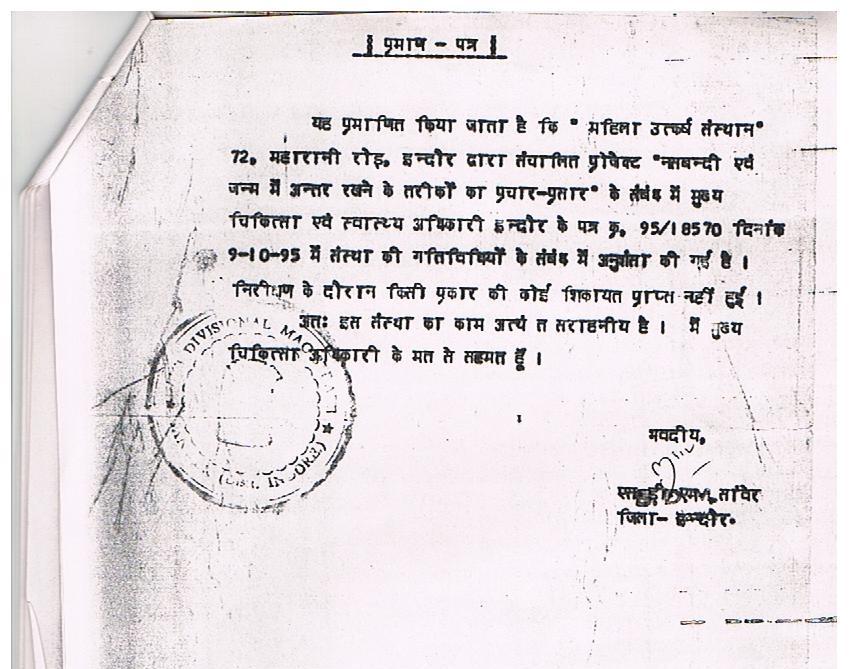 । प्रमाण - पत्र ।
यह प्रमाणित किया जाता है कि " महिला उत्कर्ष संस्थान"
72, महारानी रोड़, इन्दौर द्वारा संचालित प्रोजेक्ट "नसबन्दी एवं
जन्म में अन्तर रखने के तरीकों का प्रचार-प्रसार" के संबंध में मुख्य
चिकित्सा एवं स्वास्थ्य अधिकारी इन्दौर के पत्र क्र. 95/18570 दिनांक
9-10-95 में संस्था की गतिविधियों के संबंध में अनुशंसा की गई है ।
निरीक्षण के दौरान किसी प्रकार की कोई शिकायत प्राप्त नहीं हुई ।
अतः इस संस्था का काम अत्यंत सराहनीय है । मैं मुख्य
चिकित्सा अधिकारी के मत से सहमत हूँ ।
DIVISIONAL
(Dist. INDORE) ★
भवदीय,
एस.डी.एम. सांवेर
जिला- इन्दौर.